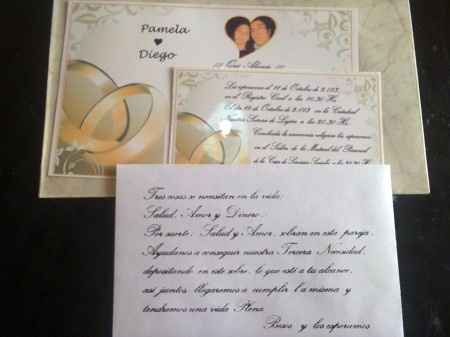 Pamela
Diego
Los esperamos el 11 de Octubre de 2.013,
en el Registro Civil a las
en la Catedral
Nuestra Señora de Luján a las 20,30 Hs.
Concluida la ceremonia religiosa los esperamos
en el Salón de la Mutual del Personal
de la
Tres cosas se necesitan en la vida:
Salud, Amor y Dinero.
Por suerte, Salud y Amor, sobran en esta pareja.
Ayudanos a conseguir nuestra Tercera Necesidad,
depositando en este sobre, lo que esté a tu alcance,
así juntos llegaremos a cumplir la misma y
tendremos una vida Plena.
Besos y los esperamos